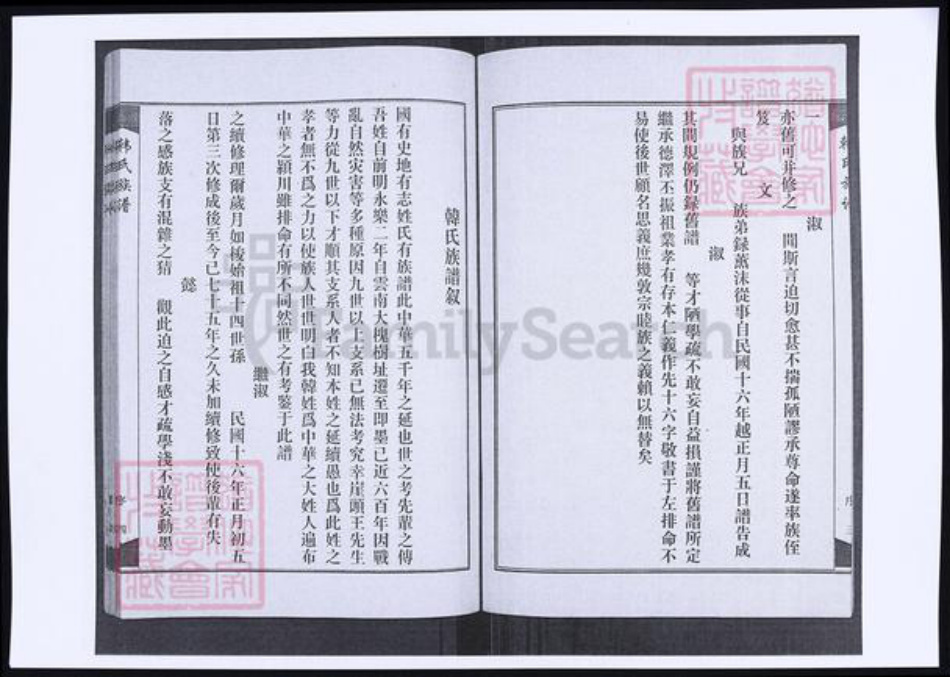 一　　　淑
亦舊可并修之　聞斯言迫切愈甚不揣孤陋謬承尊命遂率族侄
笈　　文
與族兄　　族弟錄薰沫從事自民國十六年越正月五日譜告成
淑
其間規例仍録舊譜　等才陋學疏不敢妄自益損謹將舊譜所定
繼承德澤丕振祖業孝有存本仁義作先十六字敬書于左排命不
易使後世顧名思義庶幾敦宗睦族之義賴以無替矣
韓氏族譜叙
國有史地有志姓氏有族譜此中華五千年之延也世之考先輩之傳
吾姓自前明永樂二年自雲南大槐樹址遷至即墨已近六百年因戰
亂自然灾害等多種原因九世以上支系已無法考究幸崖頭王先生
等力從九世以下才順其支系人者不知本姓之延續愚也爲此姓之
孝者無不爲之力以使族人世世明白我韓姓爲中華之大姓人遍布
中華之潁川雖排命有所不同然世之有考鑒于此譜
繼淑
之續修理爾歲月如梭始祖十四世孫　　民國十六年正月初五
日第三次修成後至今已七十五年之久未加續修致使後輩有失
懿
落之感族支有混雜之猜　觀此迫之自感才疏學淺不敢妄動墨
韓氏族譜
序
FamilySearch